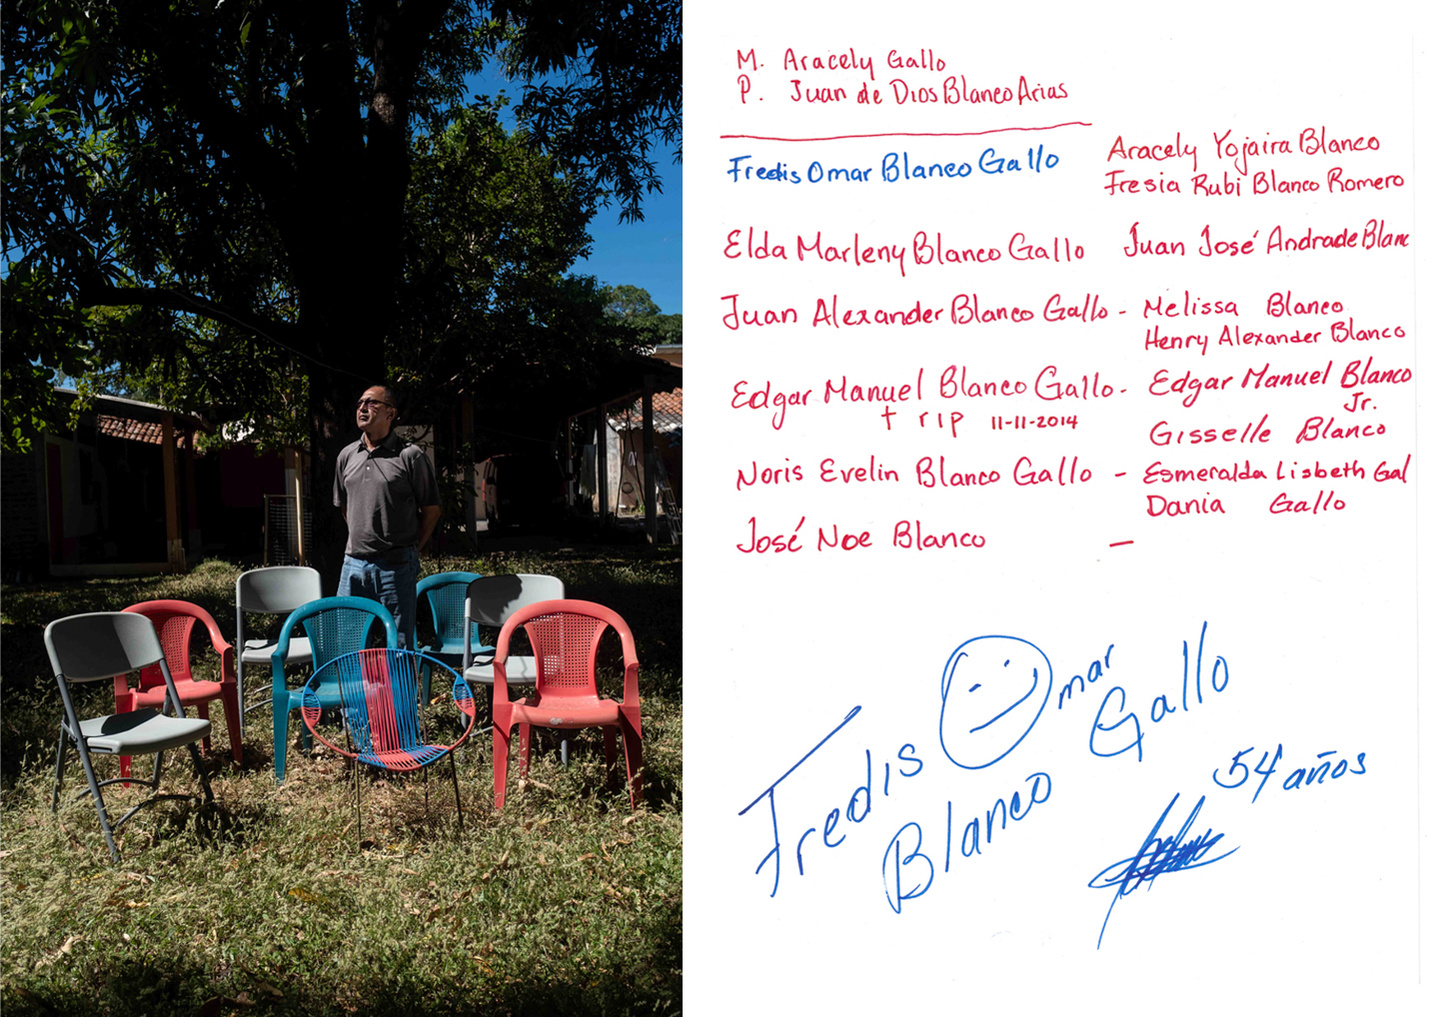 M. Aracely Gallo
P. Juan de Dios Blanco Arias
Fredis Omar Blanco Gallo
Aracely Yojaira Blanco
Fresia Rubi Blanco Romero
Elda Marleny Blanco Gallo Juan José Andrade Blanc
Juan Alexander Blanco Gallo - Melissa Blanco
Henry Alexander Blanco
Edgar Manuel Blanco Gallo - Edgar Manuel Blanco
Jr.
† rip 11-11-2014
Gisselle Blanco
Noris Evelin Blanco Gallo - Esmeralda Lisbeth Gal
Dania Gallo
José Noe Blanco —
Fredis Omar
Blanco Gallo
54 años